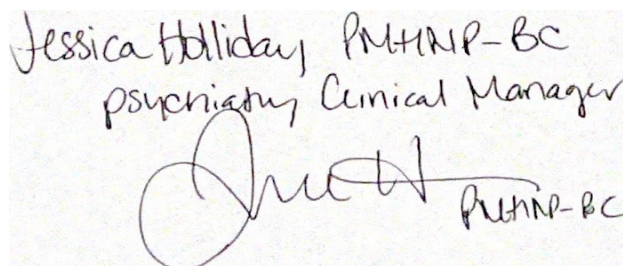 Jessica Holliday, PMHNP-BC
psychiatry Clinical Manager
PMHNP-BC